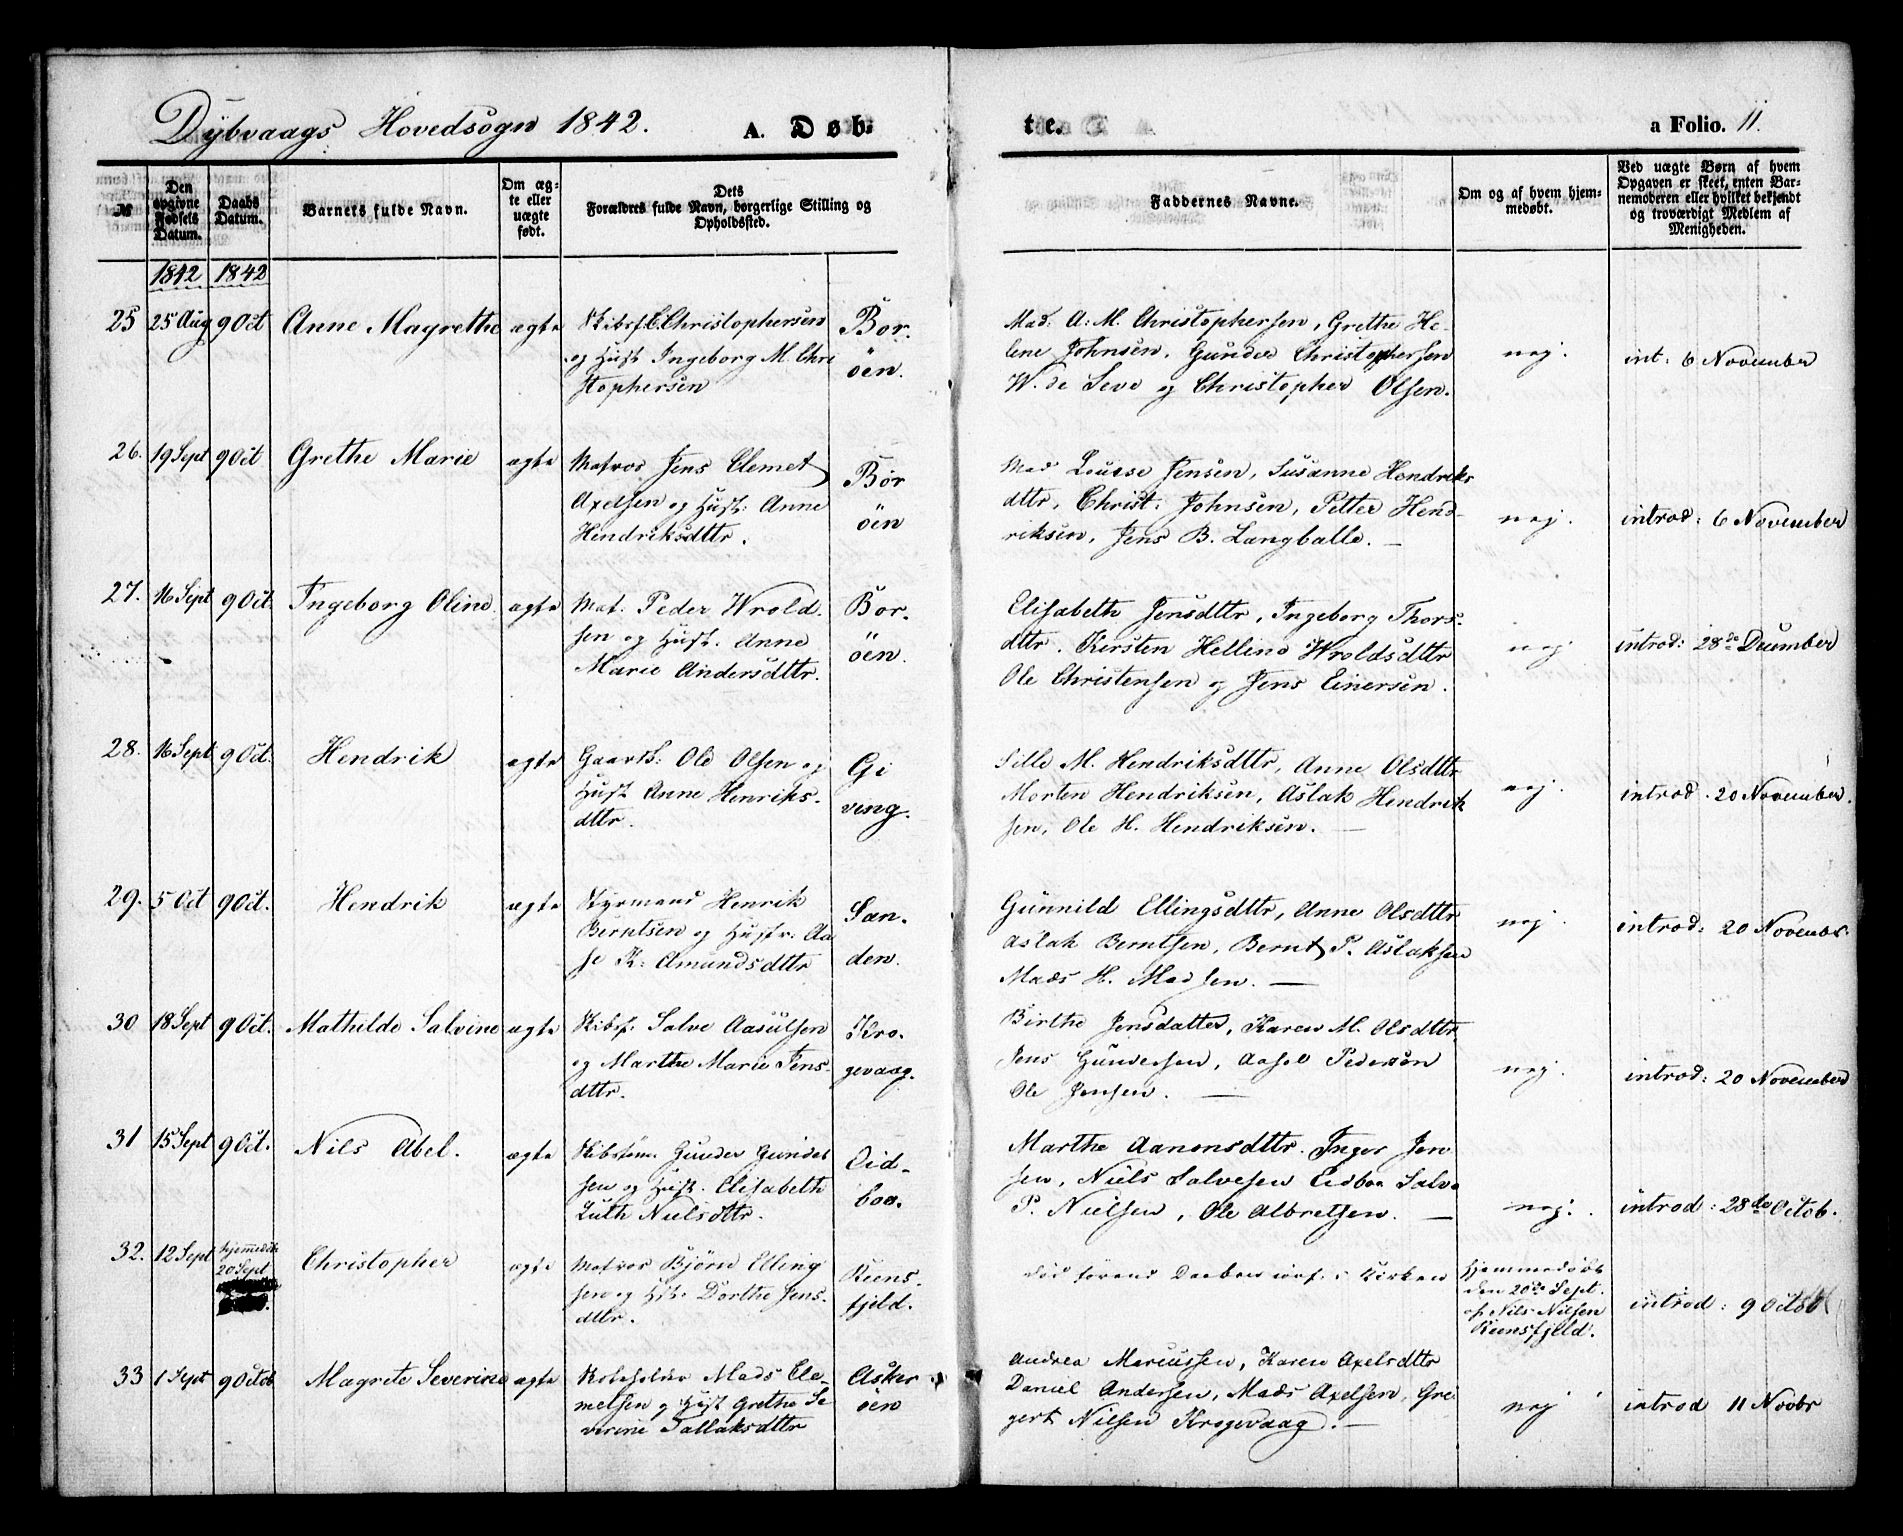 Dybvaags Hovedsogn 1842. A. Døb- te. a Folio. 11.
№
Den opgivne Fødsels Datum.
Daabs Datum.
Barnets fulde Navn.
Om ægte eller uægte født.
Dets Forældres fulde Navn, borgerlige Stilling og Opholdssted.
Faddernes Navne.
Om og af hvem hjemmedøbt.
Ved uægte Børn af hvem Opgaven er skeet, enten Barnemoderen eller hvilket bekjendt og troværdigt Medlem af Menigheden.
1842 1842
25 25 Aug 9 Oct Anne Magrethe ægte
Skibsf. C Christophersen
og Hust Ingeborg M. Chri
stophersen
Bor.
öen.
Mad: A: M. Christophersen, Grethe He-
lene Johnsen, Gunder Christophersen
W. de Seve og Christopher Olsen.
nej.
int: 6 November
26. 19 Sept 9 Oct Grethe Marie ægte
Matros Jens Clemet
Axelsen og Hust: Anne
Hendriksdttr.
Bor
öen
Mad Louise Jensen, Susanne Hendriks
dttr, Christ: Johnsen, Petter Hend-
riksen, Jens B. Langballe. —
nej.
introd: 6 November
27. 16 Sept 9 Oct. Ingeborg Oline. ægte
Mat. Peder Wrold.
sen og Hust. Anne
Marie Andersdttr.
Bor.
öen.
Elisabeth Jensdttr, Ingeborg Thors-
dttr. Kirsten Helline Wroldsdttr
Ole Christensen og Jens Einersen.
nej
introd: 28de December
28. 16 Sept 9 Oct. Hendrik ægte
Gaardb: Ole Olsen og
Hust Anne Henriks-
dttr.
Gi
ving.
Sille M. Hendriksdttr, Anne Olsdttr
Morten Hendriksen, Aslak Hendrik
sen, Ole H. Hendriksen. —
nej.
introd. 20 November.
29. 5 Oct 9 Oct. Hendrik ægte
Styrmand Henrik
Berntsen og Hustr: Aa
se K: Amundsdttr
San.
den.
Gunnild Ellingsdttr, Anne Olsdttr
Aslak Berntsen, Bernt P. Aslaksen
Mads H. Madsen. —
nej.
introd: 20 Novembr.
30 18 Sept 9 Oct. Mathilde Salvine ægte
Skibsf. Salve Aasulsen
og Marthe Marie Jens-
dttr.
Kro.
gevaag.
Birthe Jensdatter, Karen M. Olsdttr.
Jens Gundersen, Pedersen
Ole Jensen. —
nej.
introd: 20 November
31 15 Sept 9 Oct. Nils Abel. ægte
Skibstøm: Gunder Gunder
sen og Hust. Elisabeth
Luth Nielsdttr.
Eid-
boe.
Marthe Aanonsdttr. Inger Jen
sen, Niels Salvesen Eidboe Salve
P. Nielsen, Ole Albretsen. —
nej.
introd: 28de Octob.
32. 12 Sept
hjemmedøbt
20 Sept
Christopher ægte
Matros Bjørn Elling
sen og Hst. Dorthe Jens-
dttr.
Reens-
fjeld.
død førend Daaben i Kirken
Hjemmedøbt
den 20de Sept.
af Nils Nilsen
Reensfjeld.
introd: 9 Octob
33 1 Sept 9 Octob Magrete Severine ægte
Mads Cle-
metsen og Hust Grethe Se
verine Tallaksdttr
Asker
öen
Andrea Marcussen, Karen Axelsdttr
Daniel Andersen, Mads Axelsen, Gre
gert Nilsen Krogevaag. —
nej
introd 11 Novbr